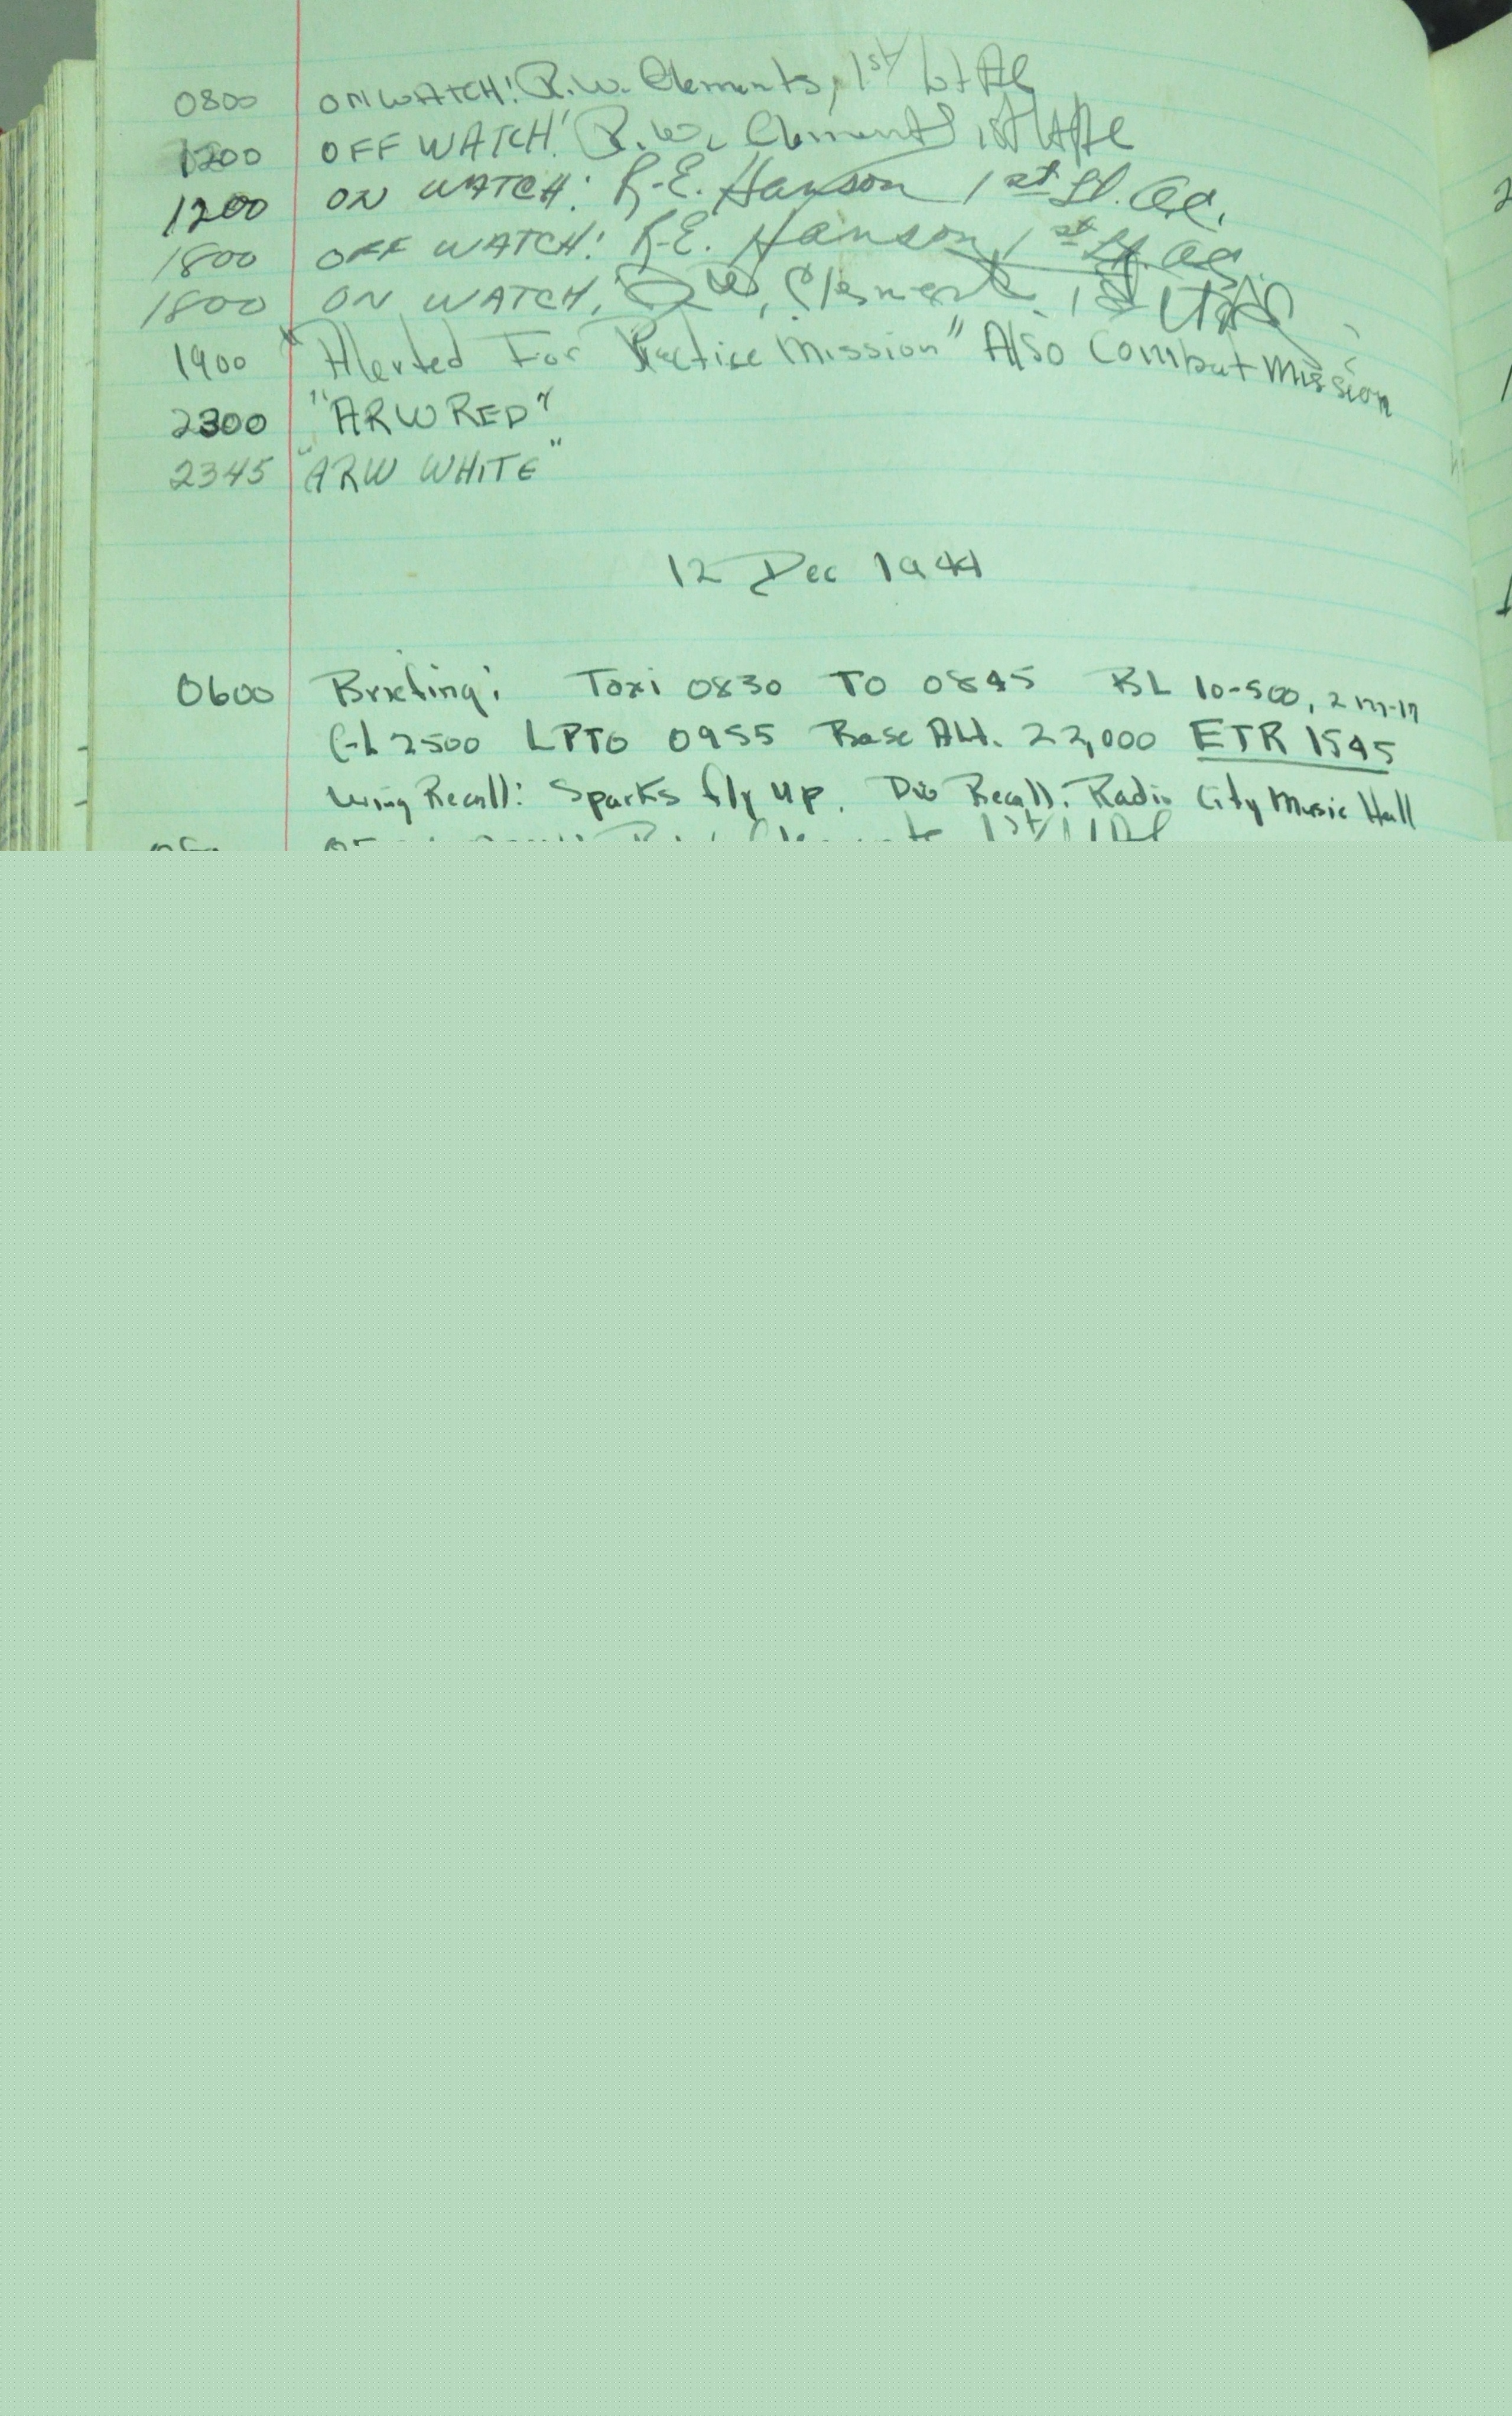 0800 ON WATCH: R.W. Clements, 1st Lt AC
1200 OFF WATCH: R.W. Clements 1st Lt AC
1200 ON WATCH: R.E. Hanson 1st Lt. AC.
1800 OFF WATCH: R.E. Hanson, 1st Lt. AC
1800 ON WATCH, RW, Clements 1st Lt AC
1900 "Alerted For Practice Mission" Also Combat Mission
2300 "ARW RED"
2345 "ARW WHITE"
12 Dec 1944
0600 Briefing: Taxi 0830 TO 0845 BL 10-500, 2 M-17
GL 2500 LPTO 0955 Base Alt. 22,000 ETR 1545
Wing Recall: Sparks fly up. Div Recall: Radio City Music Hall